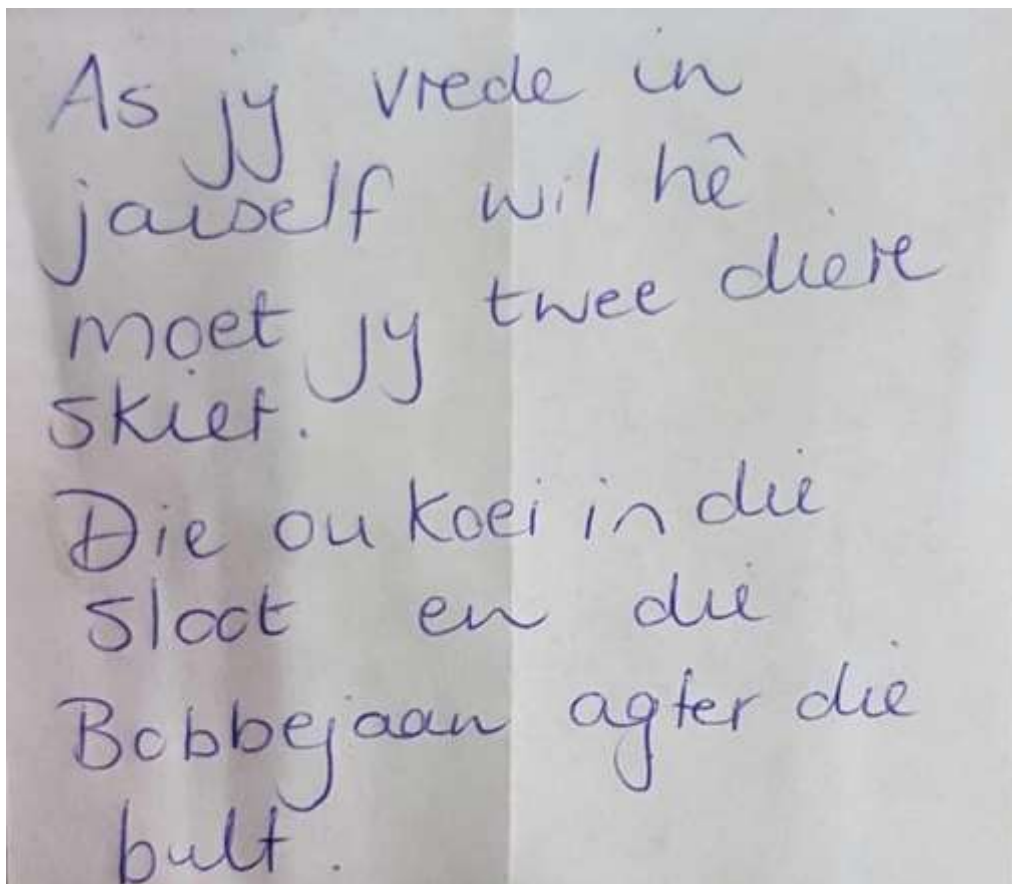 As jy vrede in
jouself wil hê
moet jy twee diere
skiet.
Die ou koei in die
sloot en die
Bobbejaan agter die
bult.